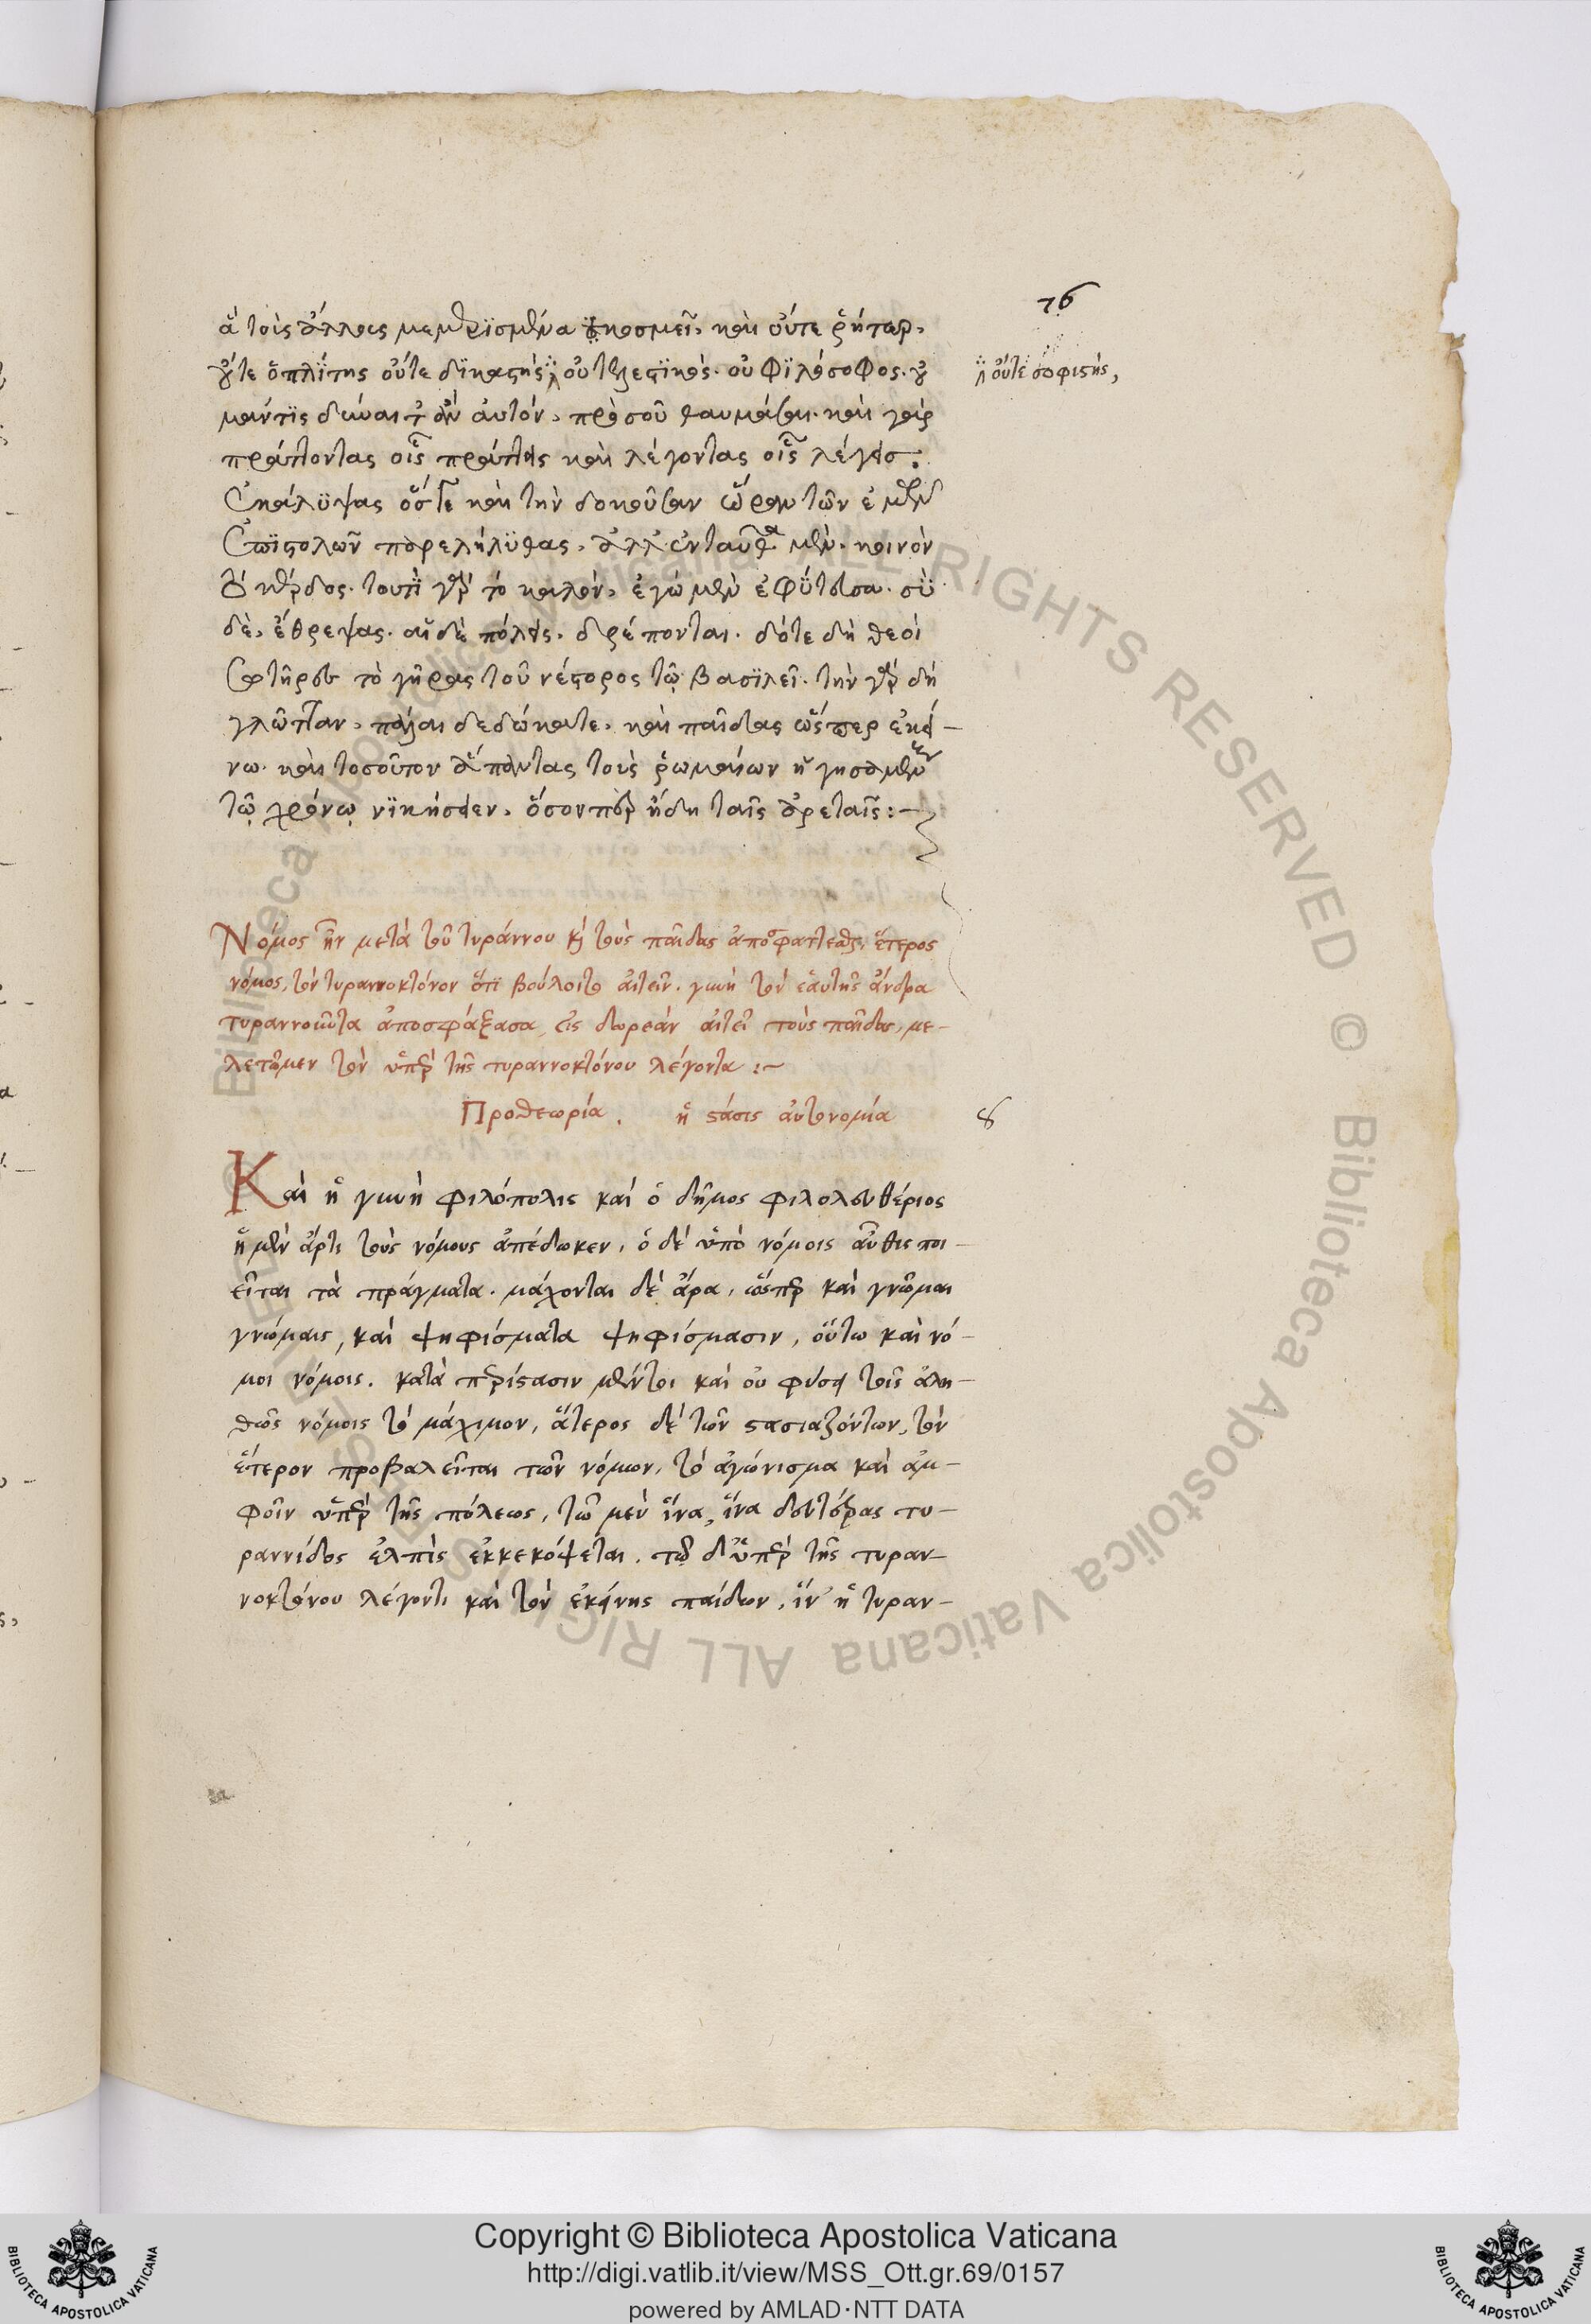 76
ἃ τοῖς ἄλλοις μεμερϊσμένα κοσμεῖ, καὶ οὔτε ῥήτωρ,
οὔτε ὁπλΐτης οὔτε δϊκαστὴς οὐ τελεστϊκὸς. οὐ φϊλόσοφος. οὐ
οὔτε σοφιστὴς,
μάντϊς δύναιτ' ἂν αὐτὸν, πρὸ σοῦ θαυμάσαι. καὶ γὰρ
πράττοντας οἷς πράττεις καὶ λέγοντας οἷς λέγεις
ἐκάλϋψας ὥστε καὶ τὴν δοκοῦσαν ὥραν τῶν ἐμῶν
ἐπϊστολῶν παρελήλϋθας, ἀλλ' ἐνταῦθα μὲν. κοινὸν
τὸ κέρδος. τουτῒ γὰρ τὸ καλὸν, ἐγὼ μὲν ἐφΰτευσα. σῢ
δὲ, ἔθρεψας. αἱ δὲ πόλεις. δρέπονται. δότε δὴ θεοὶ
σωτῆρες τὸ γῆρας τοῦ νέστορος τῷ βασϊλεῖ. τὴν γὰρ δὴ
γλῶτταν, πάλαι δεδώκατε, καὶ παῖδας ὥσπερ ἐκεί-
νῳ. καὶ τοσοῦτον ἅπαντας τοὺς ῥωμαίων ἡγησαμένους
τῷ χρόνῳ νϊκήσειεν, ὅσονπερ ἤδη ταῖς ἀρεταῖς:—
Νόμος ἦν μετὰ τοῦ τυράννου καὶ τοὺς παῖδας ἀποσφάττεσθαι, ἕτερος
νόμος, τὸν τυραννοκτόνον ὅτϊ βούλοιτο αἰτεῖν. γυνὴ τὸν ἑαυτῆς ἄνδρα
τυραννοῦντα ἀποσφάξασα, εἰς δωρεὰν αἰτεῖ τοὺς παῖδας, με-
λετῶμεν τὸν ὑπὲρ τῆς τυραννοκτόνου λέγοντα:~
Προθεωρία. ἡ στάσις ἀντινομία
Καὶ ἡ γυνὴ φιλόπολις καὶ ὁ δῆμος φιλολευθέριος
ἡ μὲν ἄρτι τοὺς νόμους ἀπέδωκεν, ὁ δὲ ὑπὸ νόμοις αὖθις ποι-
εῖται τὰ πράγματα. μάχονται δὲ ἄρα, ὥσπερ καὶ γνῶμαι
γνώμαις, καὶ ψηφίσματα ψηφίσμασιν, οὕτω καὶ νό-
μοι νόμοις. κατὰ περίστασιν μέντοι καὶ οὐ φύσει τοῖς ἀλη-
θῶς νόμοις τὸ μάχιμον, ἅτερος δὲ τῶν στασιαζόντων, τὸν
ἕτερον προβαλεῖται τῶν νόμων, τὸ ἀγώνισμα καὶ ἀμ-
φοῖν ὑπὲρ τῆς πόλεως, τῷ μὲν ἵνα, ἵνα δευτέρας τυ-
ραννίδος ἐλπὶς ἐκκεκόψεται. τῷ δ' ὑπὲρ τῆς τυραν-
νοκτόνου λέγοντι καὶ τῶν ἐκείνης παίδων, ἵν' ἡ τυραν-
Copyright © Biblioteca Apostolica Vaticana
http://digi.vatlib.it/view/MSS_Ott.gr.69/0157
powered by AMLAD·NTT DATA